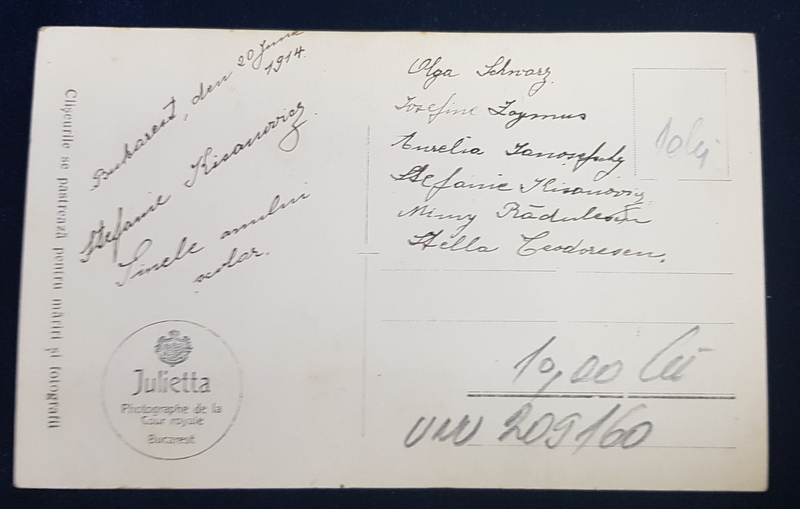 Clișeurile se pastrează pentru măriri și fotografii
Bukarest, den 20 Juni
1914.
Stefanie Kisanovicz
Finele anului
scolar.
Julietta
Photographe de la
Cour royale
Bucarest
Olga Schwarz
Josefine Zaymus
Aurelia
Stefanie Kisanovicz
Mimy Rădulescu
Stella Teodorescu.
10 lei
10,00 lei
209160